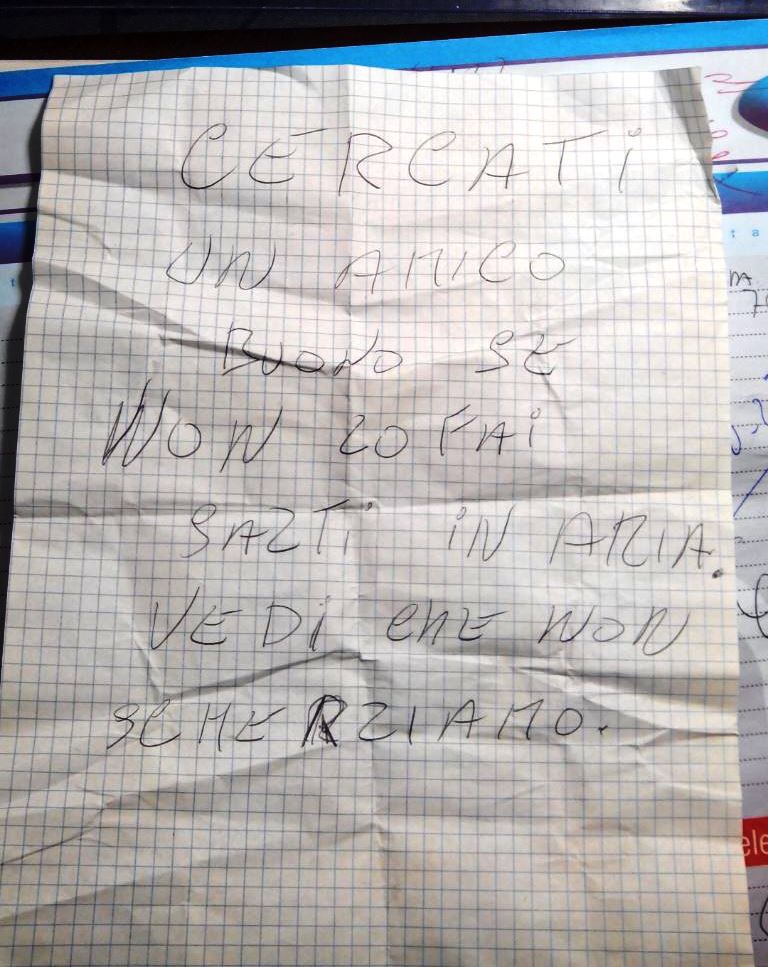 CERCATi
UN AMICO
BUONO SE
NON LO FAi
SALTi iN ARIA.
VEDi CHE NON
SCHERZIAMO.
ele